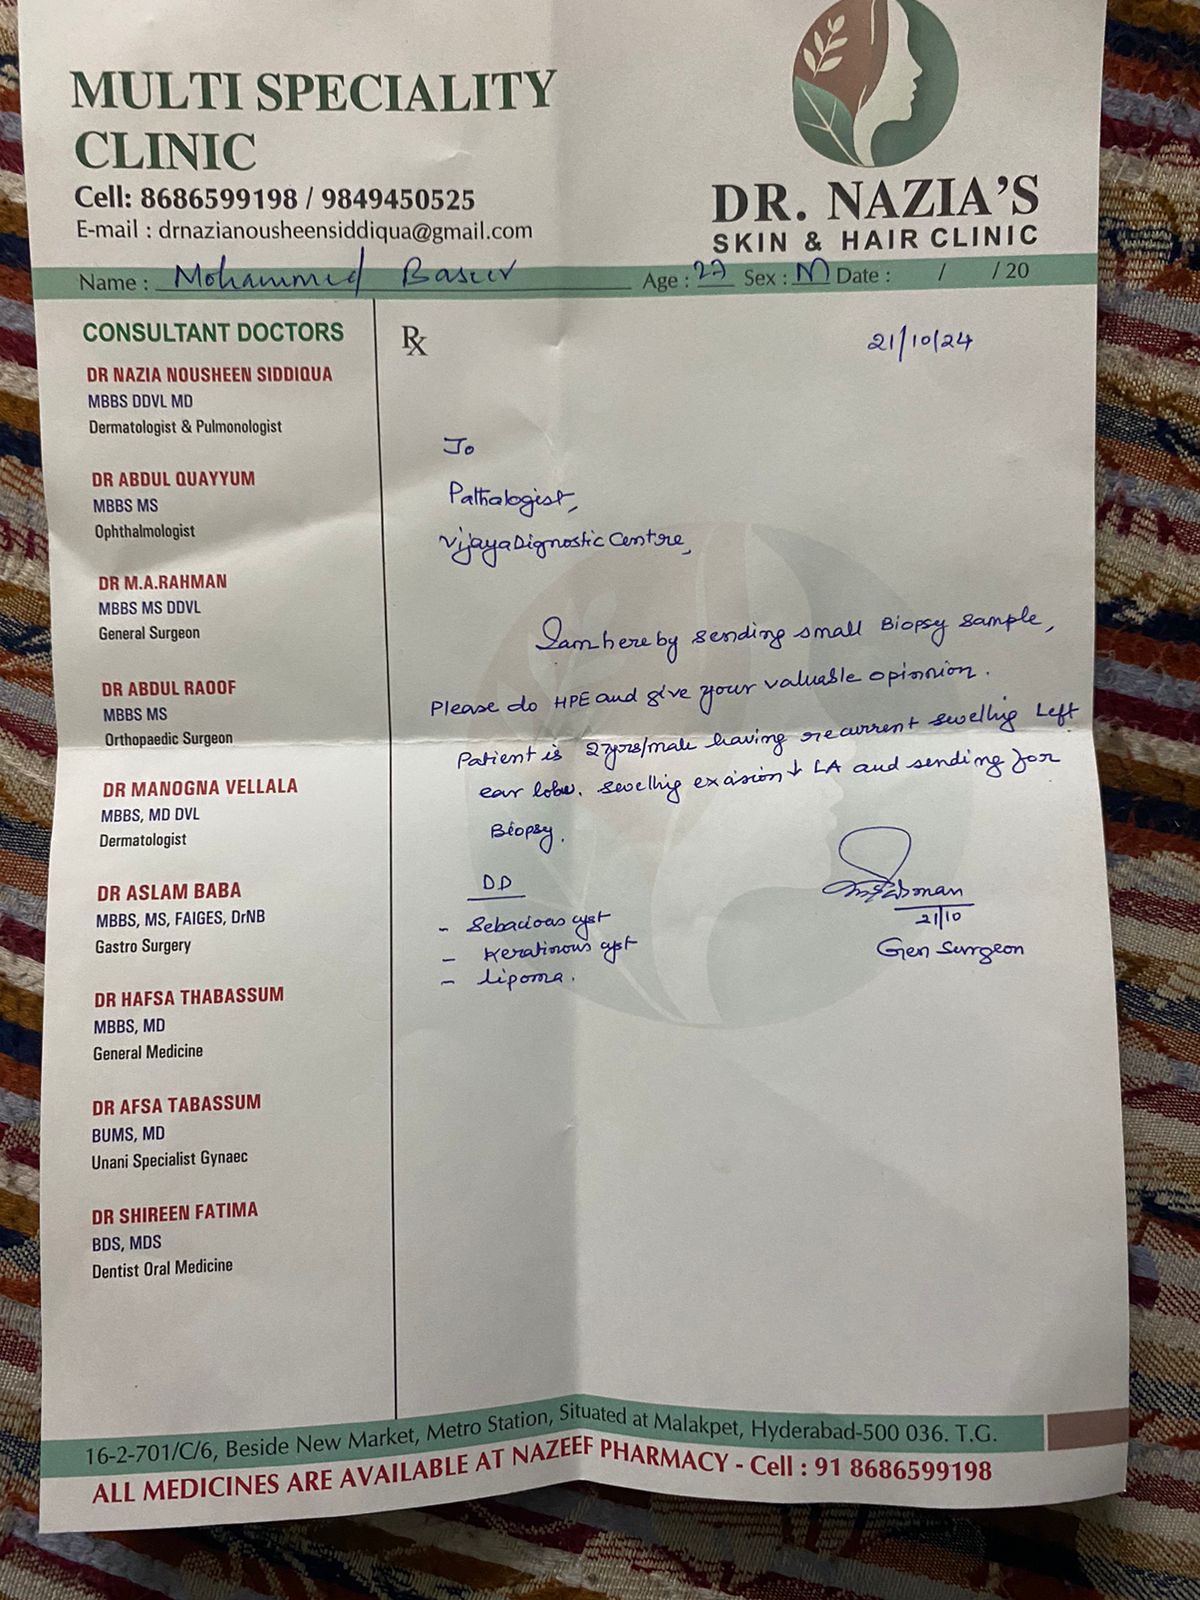 MULTI SPECIALITY
CLINIC
Cell: 8686599198 / 9849450525
E-mail : drnazianousheensiddiqua@gmail.com
DR. NAZIA'S
SKIN & HAIR CLINIC
Name : Mohammed Baseer Age : 27 Sex : M Date : / / 20
CONSULTANT DOCTORS
DR NAZIA NOUSHEEN SIDDIQUA
MBBS DDVL MD
Dermatologist & Pulmonologist
DR ABDUL QUAYYUM
MBBS MS
Ophthalmologist
DR M.A.RAHMAN
MBBS MS DDVL
General Surgeon
DR ABDUL RAOOF
MBBS MS
Orthopaedic Surgeon
DR MANOGNA VELLALA
MBBS, MD DVL
Dermatologist
DR ASLAM BABA
MBBS, MS, FAIGES, DrNB
Gastro Surgery
DR HAFSA THABASSUM
MBBS, MD
General Medicine
DR AFSA TABASSUM
BUMS, MD
Unani Specialist Gynaec
DR SHIREEN FATIMA
BDS, MDS
Dentist Oral Medicine
Rx
21/10/24
To
Pathalogist,
Vijaya Dignostic Centre,
I am here by sending small Biopsy sample,
Please do HPE and give your valuable opinnion.
Patient is 27yrs/male having recurrent swellig Left
ear lobe. Swellig excision ↓ LA and sending for
Biopsy.
DD
- Sebacious cyst
- Keratinous cyst
- lipoma.
21/10
Gen Surgeon
16-2-701/C/6, Beside New Market, Metro Station, Situated at Malakpet, Hyderabad-500 036. T.G.
ALL MEDICINES ARE AVAILABLE AT NAZEEF PHARMACY - Cell : 91 8686599198